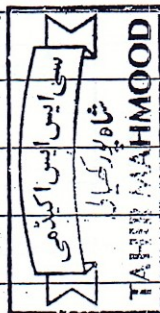 سی ایس ایس اکیڈمی
شاہ پور
TAHIR MAHMOOD